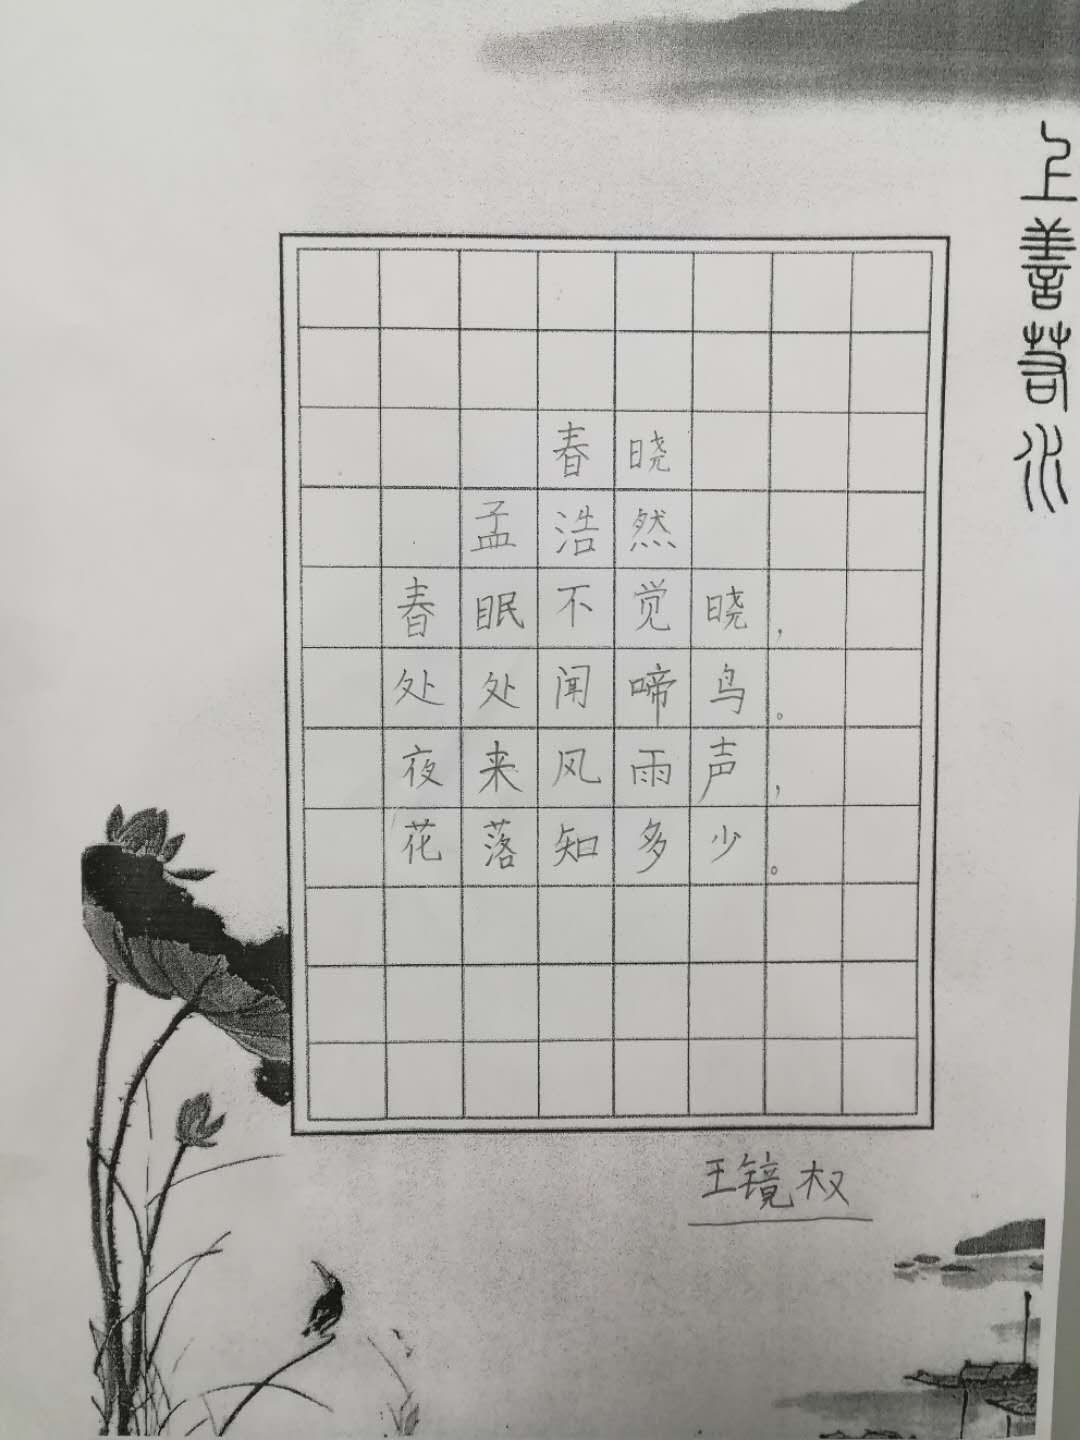 上善若水
春晓
孟浩然
春眠不觉晓，
处处闻啼鸟。
夜来风雨声，
花落知多少。
王镜权